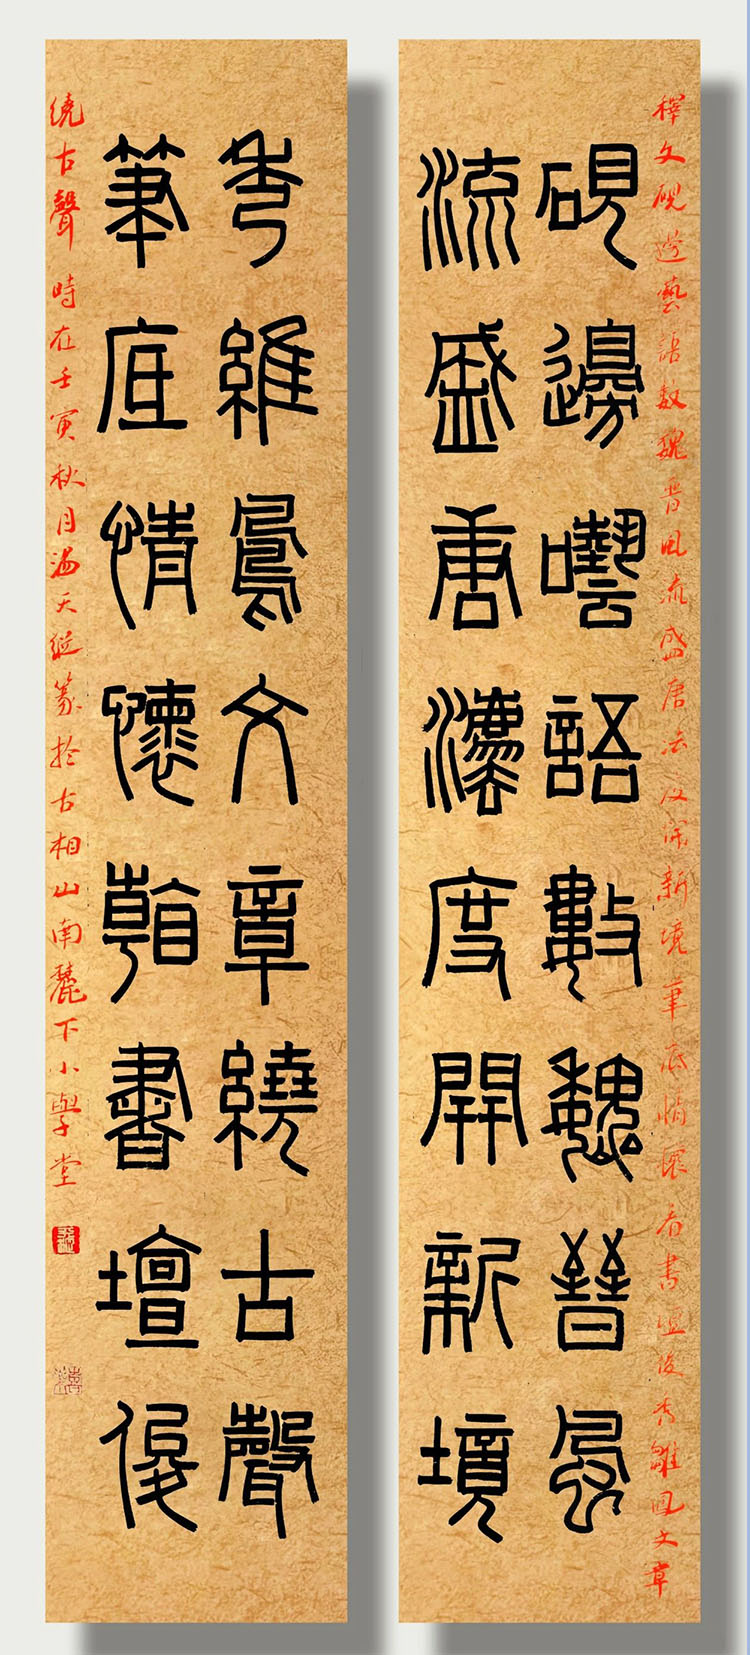 硯邊囈語數魏晉風
流盛唐灋度開新境
筆底情懷看書壇俊
秀維鳳文章繞古聲
釋文硯邊藝語數魏晉風流盛唐法度開新境筆底情懷看書壇俊秀雛鳳文章
繞古聲時在壬寅秋月海天縱篆於古相山南麓下小學堂